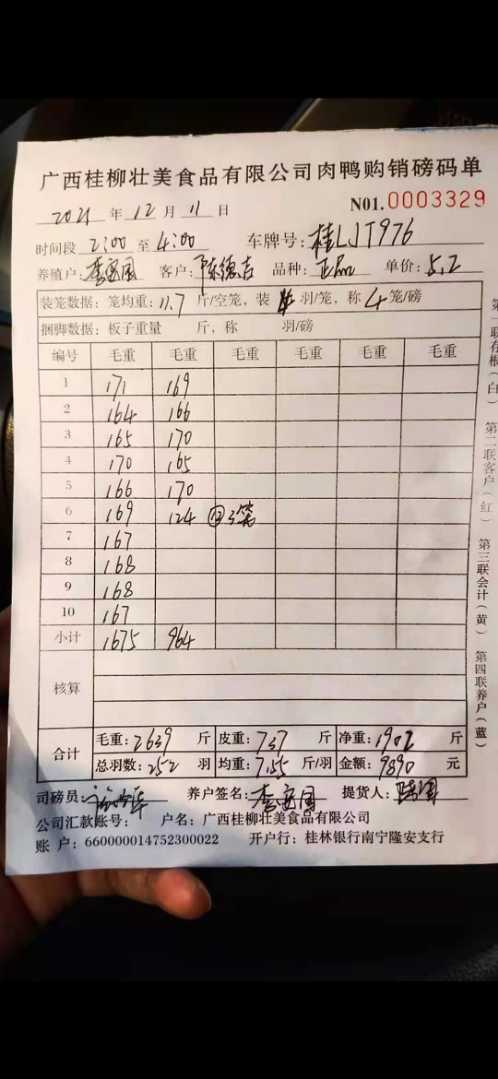 广西桂柳壮美食品有限公司肉鸭购销磅码单
2021 年 12 月 11 日 N01.0003329
时间段 2:00 至 4:00 车牌号: 桂LJT976
养殖户: 李 国 客户: 陈德吉 品种: 正品 单价: 5.2
装笼数据: 笼均重: 11.7 斤/空笼, 装 4 羽/笼, 称 4 笼/磅
捆脚数据: 板子重量 斤, 称 羽/磅
编号 毛重 毛重 毛重 毛重 毛重
1 171 169
2 164 166
3 165 170
4 170 165
5 166 170
6 169 124 3笼
7 167
8 168
9 168
10 167
小计 1675 964
核算
合计
毛重: 2639 斤 皮重: 737 斤 净重: 1902 斤
总羽数: 252 羽 均重: 7.55 斤/羽 金额: 9890 元
司磅员: 养户签名: 李 国 提货人:
公司汇款账号: 户名: 广西桂柳壮美食品有限公司
账 户: 660000014752300022 开户行: 桂林银行南宁隆安支行
第一联存根(白)
第二联客户(红)
第三联会计(黄)
第四联养户(蓝)